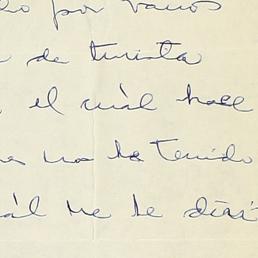 por varios
de turista
el cuál hace
no ha tenido
me he diri